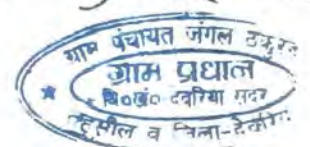 ग्राम पंचायत जंगल ठकुरही
ग्राम प्रधान
वि०खं० देवरिया सदर
तहसील व जिला-देवरिया